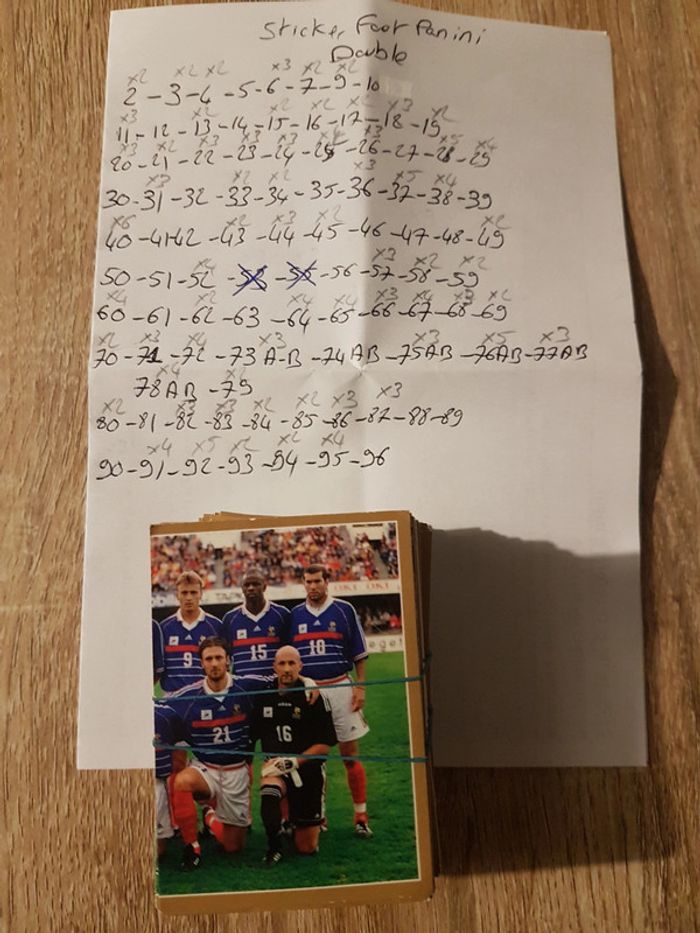 Sticker Foot Panini
Double
x2 x2 x2 x3 x2 x2
2 - 3 - 4 - 5 - 6 - 7 - 9 - 10
x3 x2 x2 x2 x3 x2
11 - 12 - 13 - 14 - 15 - 16 - 17 - 18 - 19
x3 x2 x3 x3 x3 x4 x3 x5 x4
20 - 21 - 22 - 23 - 24 - 25 - 26 - 27 - 28 - 29
x3 x2 x2 x3 x5 x4
30 - 31 - 32 - 33 - 34 - 35 - 36 - 37 - 38 - 39
x6 x2 x3 x2 x2
40 - 41-42 - 43 - 44 - 45 - 46 - 47 - 48 - 49
x4 x3 x2 x2
50 - 51 - 52 - 56 - 57 - 58 - 59
x4 x2 x4 x4 x3 x4 x3 x2
60 - 61 - 62 - 63 - 64 - 65 - 66 - 67 - 68 - 69
x2 x3 x4 x3 x3 x5 x3
70 - 71 - 72 - 73 A-B - 74 AB - 75 AB - 76 AB - 77 AB
x4 x2
78 AB - 79
x2 x3 x3 x2 x2 x3 x3
80 - 81 - 82 - 83 - 84 - 85 - 86 - 87 - 88 - 89
x4 x5 x2 x2 x4
90 - 91 - 92 - 93 - 94 - 95 - 96
9
15
10
21
16